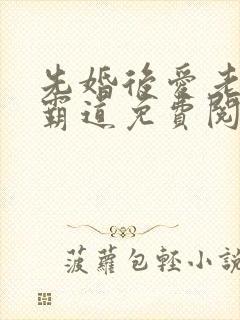 先婚後愛老
霸道免費閱
菠蘿包輕小說